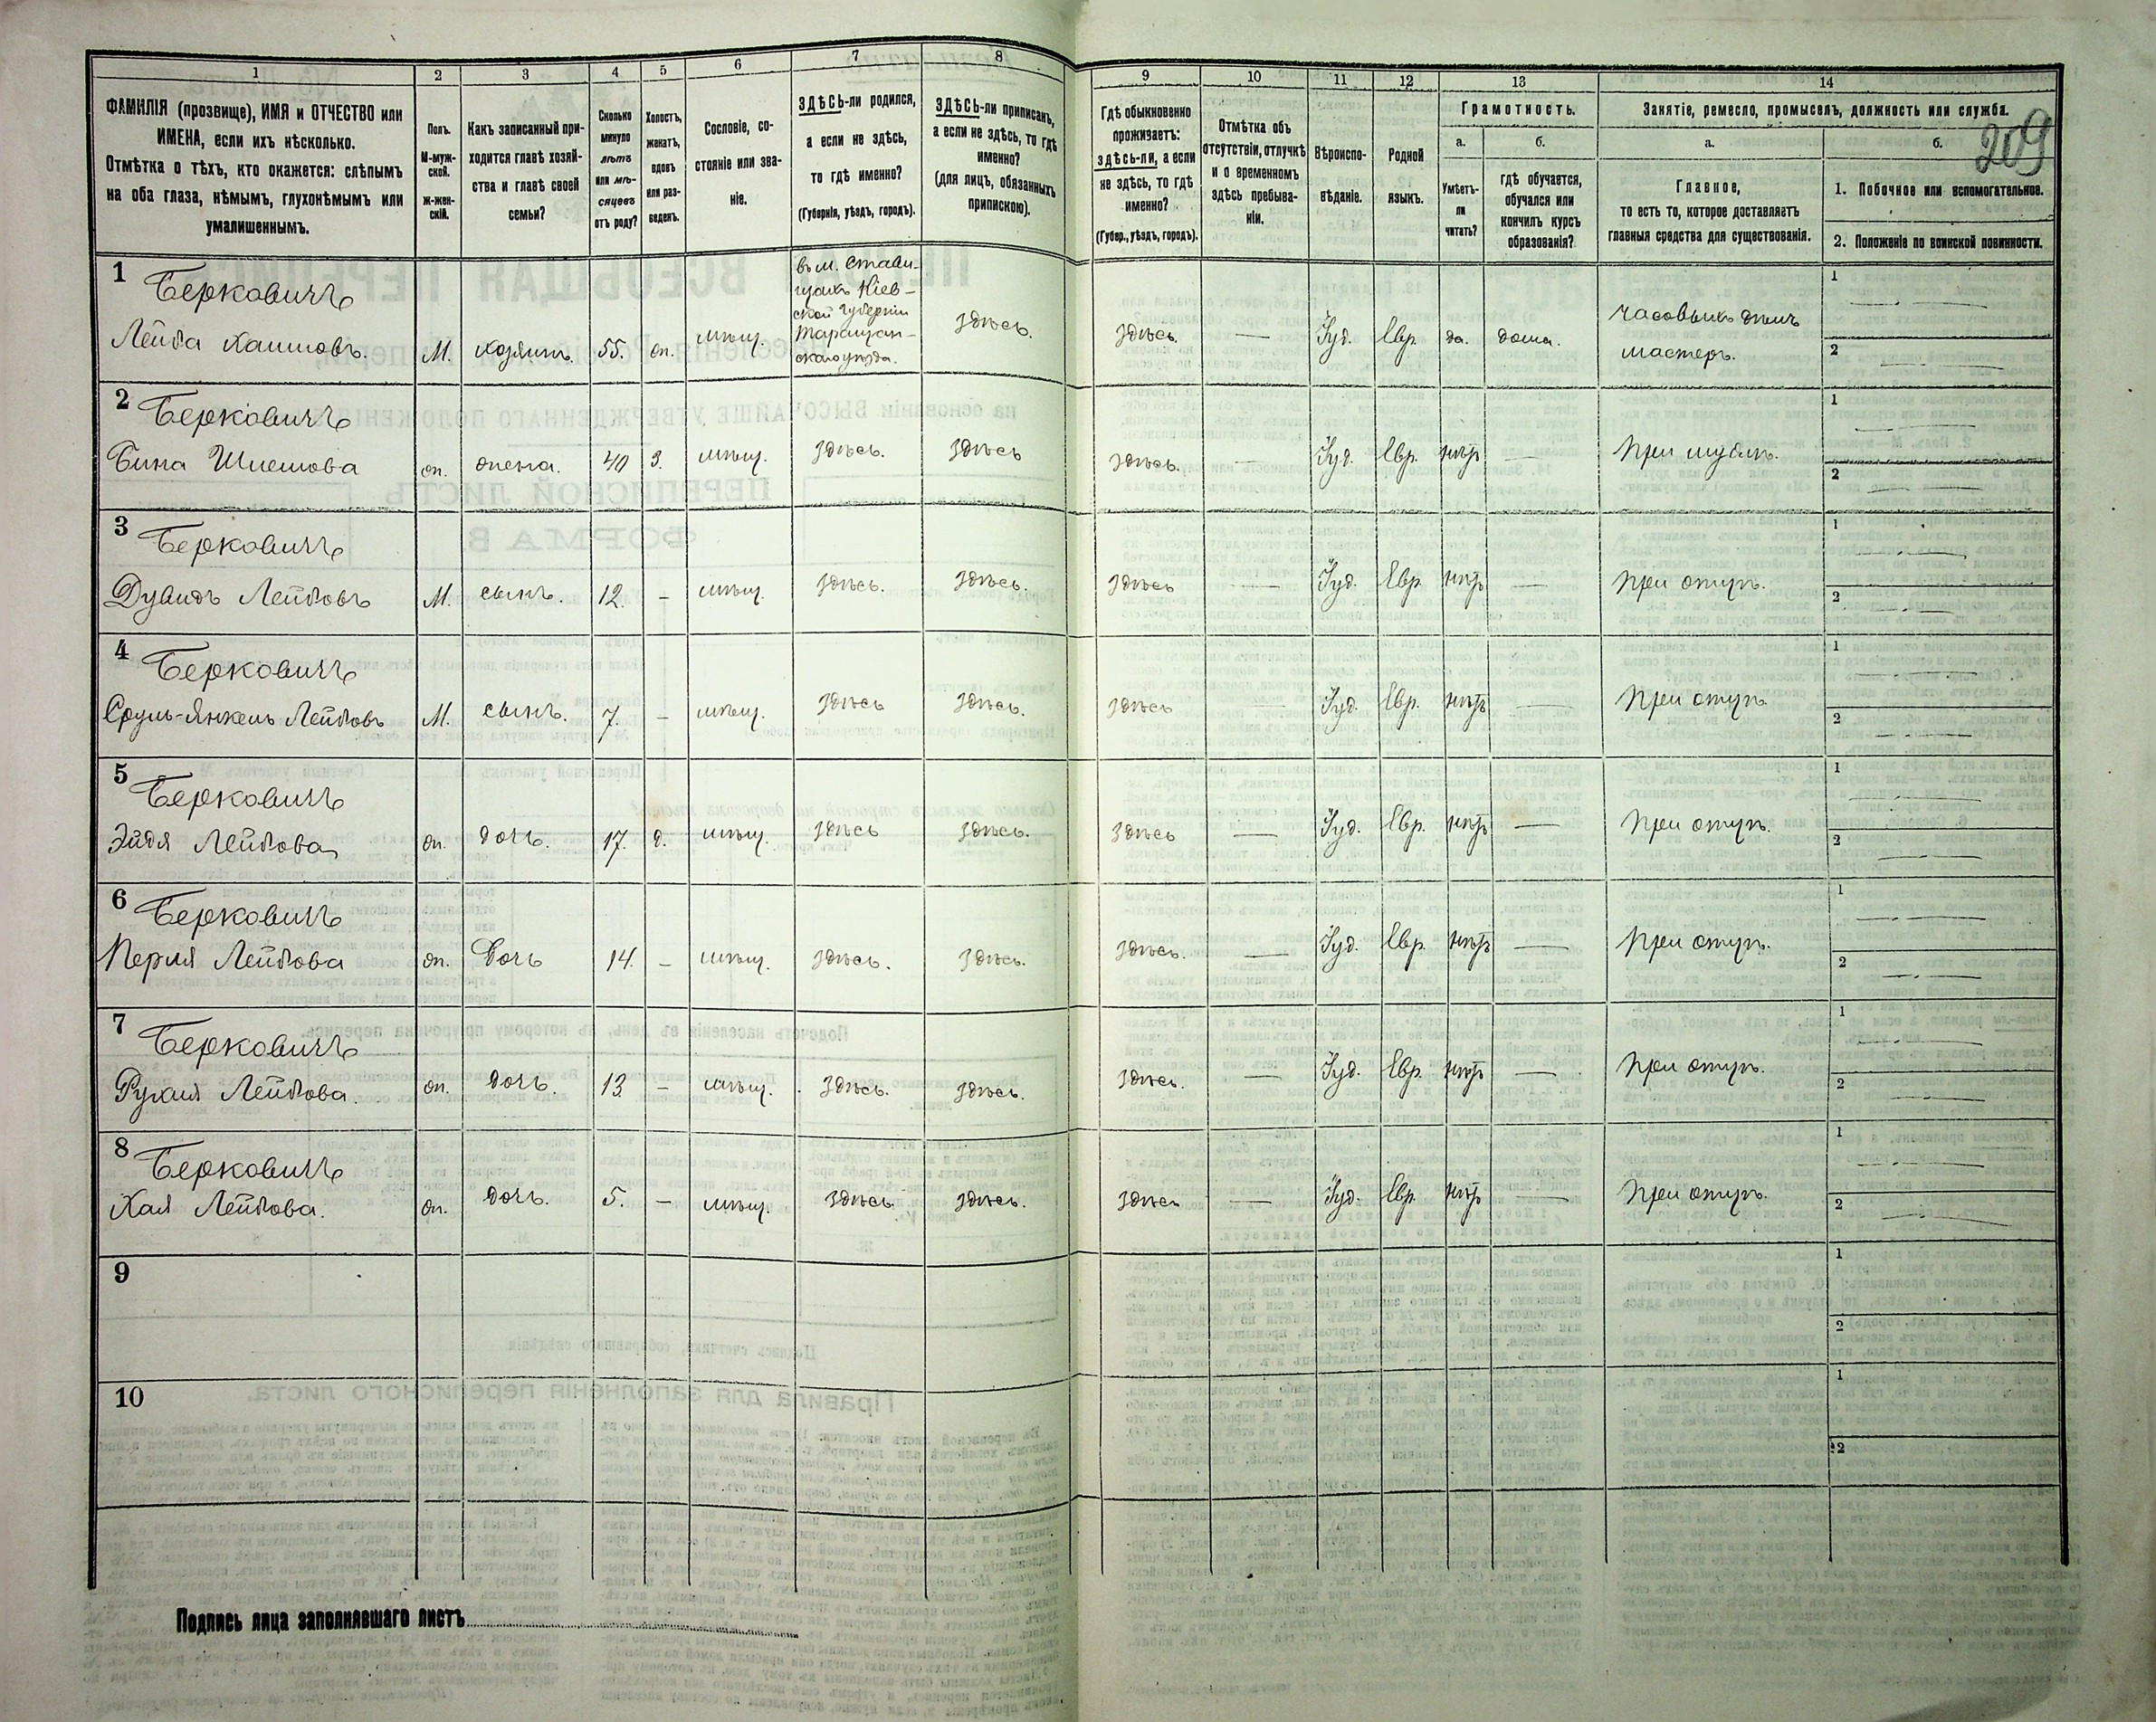 1 2 3 4 5 6 7 8 9 10 11 12 13 14
209
ФАМИЛІЯ (прозвище), ИМЯ и ОТЧЕСТВО или
ИМЕНА, если ихъ нѣсколько.
Отмѣтка о тѣхъ, кто окажется: слѣпымъ
на оба глаза, нѣмымъ, глухонѣмымъ или
умалишеннымъ.
Полъ.
М-муж-
ской.
Ж-жен-
скій.
Какъ записанный при-
ходится главѣ хозяй-
ства и главѣ своей
семьи?
Сколько
минуло
лѣтъ
или мѣ-
сяцевъ
отъ роду?
Холостъ,
женатъ,
вдовъ
или раз-
веденъ.
Сословіе, со-
стояніе или зва-
ніе.
ЗДѢСЬ-ли родился,
а если не здѣсь,
то гдѣ именно?
(Губернія, уѣздъ, городъ).
ЗДѢСЬ-ли приписанъ,
а если не здѣсь, то гдѣ
именно?
(для лицъ, обязанныхъ
припискою).
Гдѣ обыкновенно
проживаетъ:
здѣсь-ли, а если
не здѣсь, то гдѣ
именно?
(Губер., уѣздъ, городъ).
Отмѣтка объ
отсутствіи, отлучкѣ
и о временномъ
здѣсь пребыва-
ніи.
Вѣроиспо-
вѣданіе.
Родной
языкъ.
Грамотность.
а.
Умѣетъ-
ли
читать?
б.
гдѣ обучается,
обучался или
кончилъ курсъ
образованія?
Занятіе, ремесло, промыселъ, должность или служба.
а.
Главное,
то есть то, которое доставляетъ
главныя средства для существованія.
б.
1. Побочное или вспомогательное.
2. Положеніе по воинской повинности.
1 Берковичъ
Лейба Хаимовъ. М. хозяинъ. 55. жп. мѣщ.
въ м. Стави-
щахъ Кіев-
ской губерніи
Таращан-
скаго уѣзда.
здѣсь. здѣсь. — Іуд. Евр. да. дома.
часовыхъ дѣлъ
мастеръ.
1 —
2 —
2 Берковичъ
Бина Шлемова ж. жена. 40 З. мѣщ. здѣсь. здѣсь здѣсь. — Іуд. Евр. нѣтъ — При мужѣ.
1
2 —
3 Берковичъ
Дувидъ Лейбовъ М. сынъ. 12. — мѣщ. здѣсь. здѣсь. здѣсь — Іуд. Евр. нѣтъ — При отцѣ.
1 —
2 —
4 Берковичъ
Сруль-Янкель Лейбовъ М. сынъ. 7. — мѣщ. здѣсь здѣсь. здѣсь — Іуд. Евр. нѣтъ — При отцѣ
1 —
2 —
5 Берковичъ
Эйдя Лейбова ж. дочь. 17. д. мѣщ. здѣсь здѣсь. здѣсь — Іуд. Евр. нѣтъ — При отцѣ.
1 —
2 —
6 Берковичъ
Перля Лейбова ж. Дочь 14. — мѣщ. здѣсь. здѣсь. здѣсь. — Іуд. Евр. нѣтъ — При отцѣ.
1 —
2 —
7 Берковичъ
Рухля Лейбова. ж. дочь. 13. — мѣщ. здѣсь. здѣсь. здѣсь. — Іуд. Евр. нѣтъ — При отцѣ.
1
2 —
8 Берковичъ
Хая Лейбова. ж. дочь. 5. — мѣщ. здѣсь здѣсь. здѣсь — Іуд. Евр. нѣтъ — При отцѣ.
1 —
2 —
9
1
2
10
1
2
Подпись лица заполнявшаго листъ